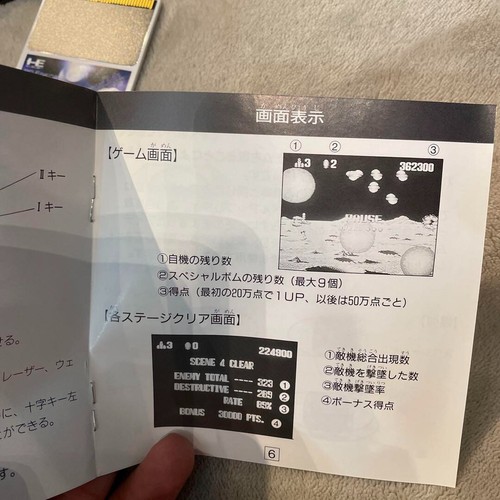 HE
Ⅱキー
Ⅰキー
せる。
レーザー、ウェ
に、十字キー左
とができる。
す。
画面表示
がめんひょうじ
【ゲーム画面】
がめん
① ② ③
3 2 362300
PAUSE
①自機の残り数
②スペシャルボムの残り数（最大9個）
③得点（最初の20万点で1UP、以後は50万点ごと）
【各ステージクリア画面】
がめん
3 0 224900
SCENE 4 CLEAR
ENEMY TOTAL ---- 323 ①
DESTRUCTIVE ---- 269 ②
RATE 83% ③
BONUS 30000 PTS. ④
①敵機総合出現数
②敵機を撃墜した数
③敵機撃墜率
④ボーナス得点
6